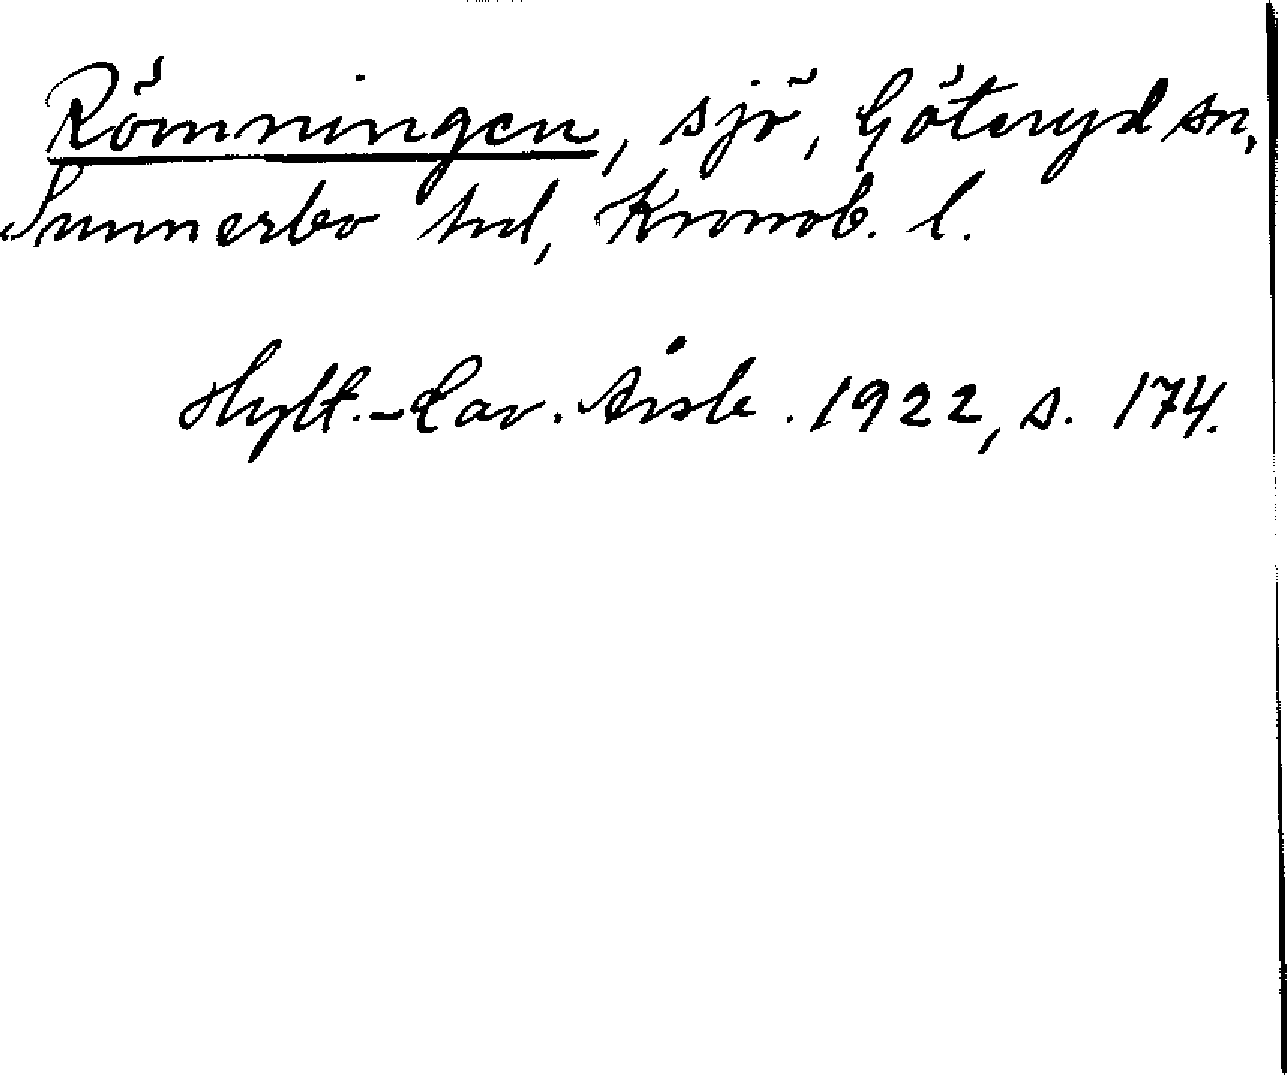 Römningen, sjö, Göteryd sn,
Sunnerbo hd, Kronob. l.
Hylt.-Cav. Årsb. 1922, s. 174.